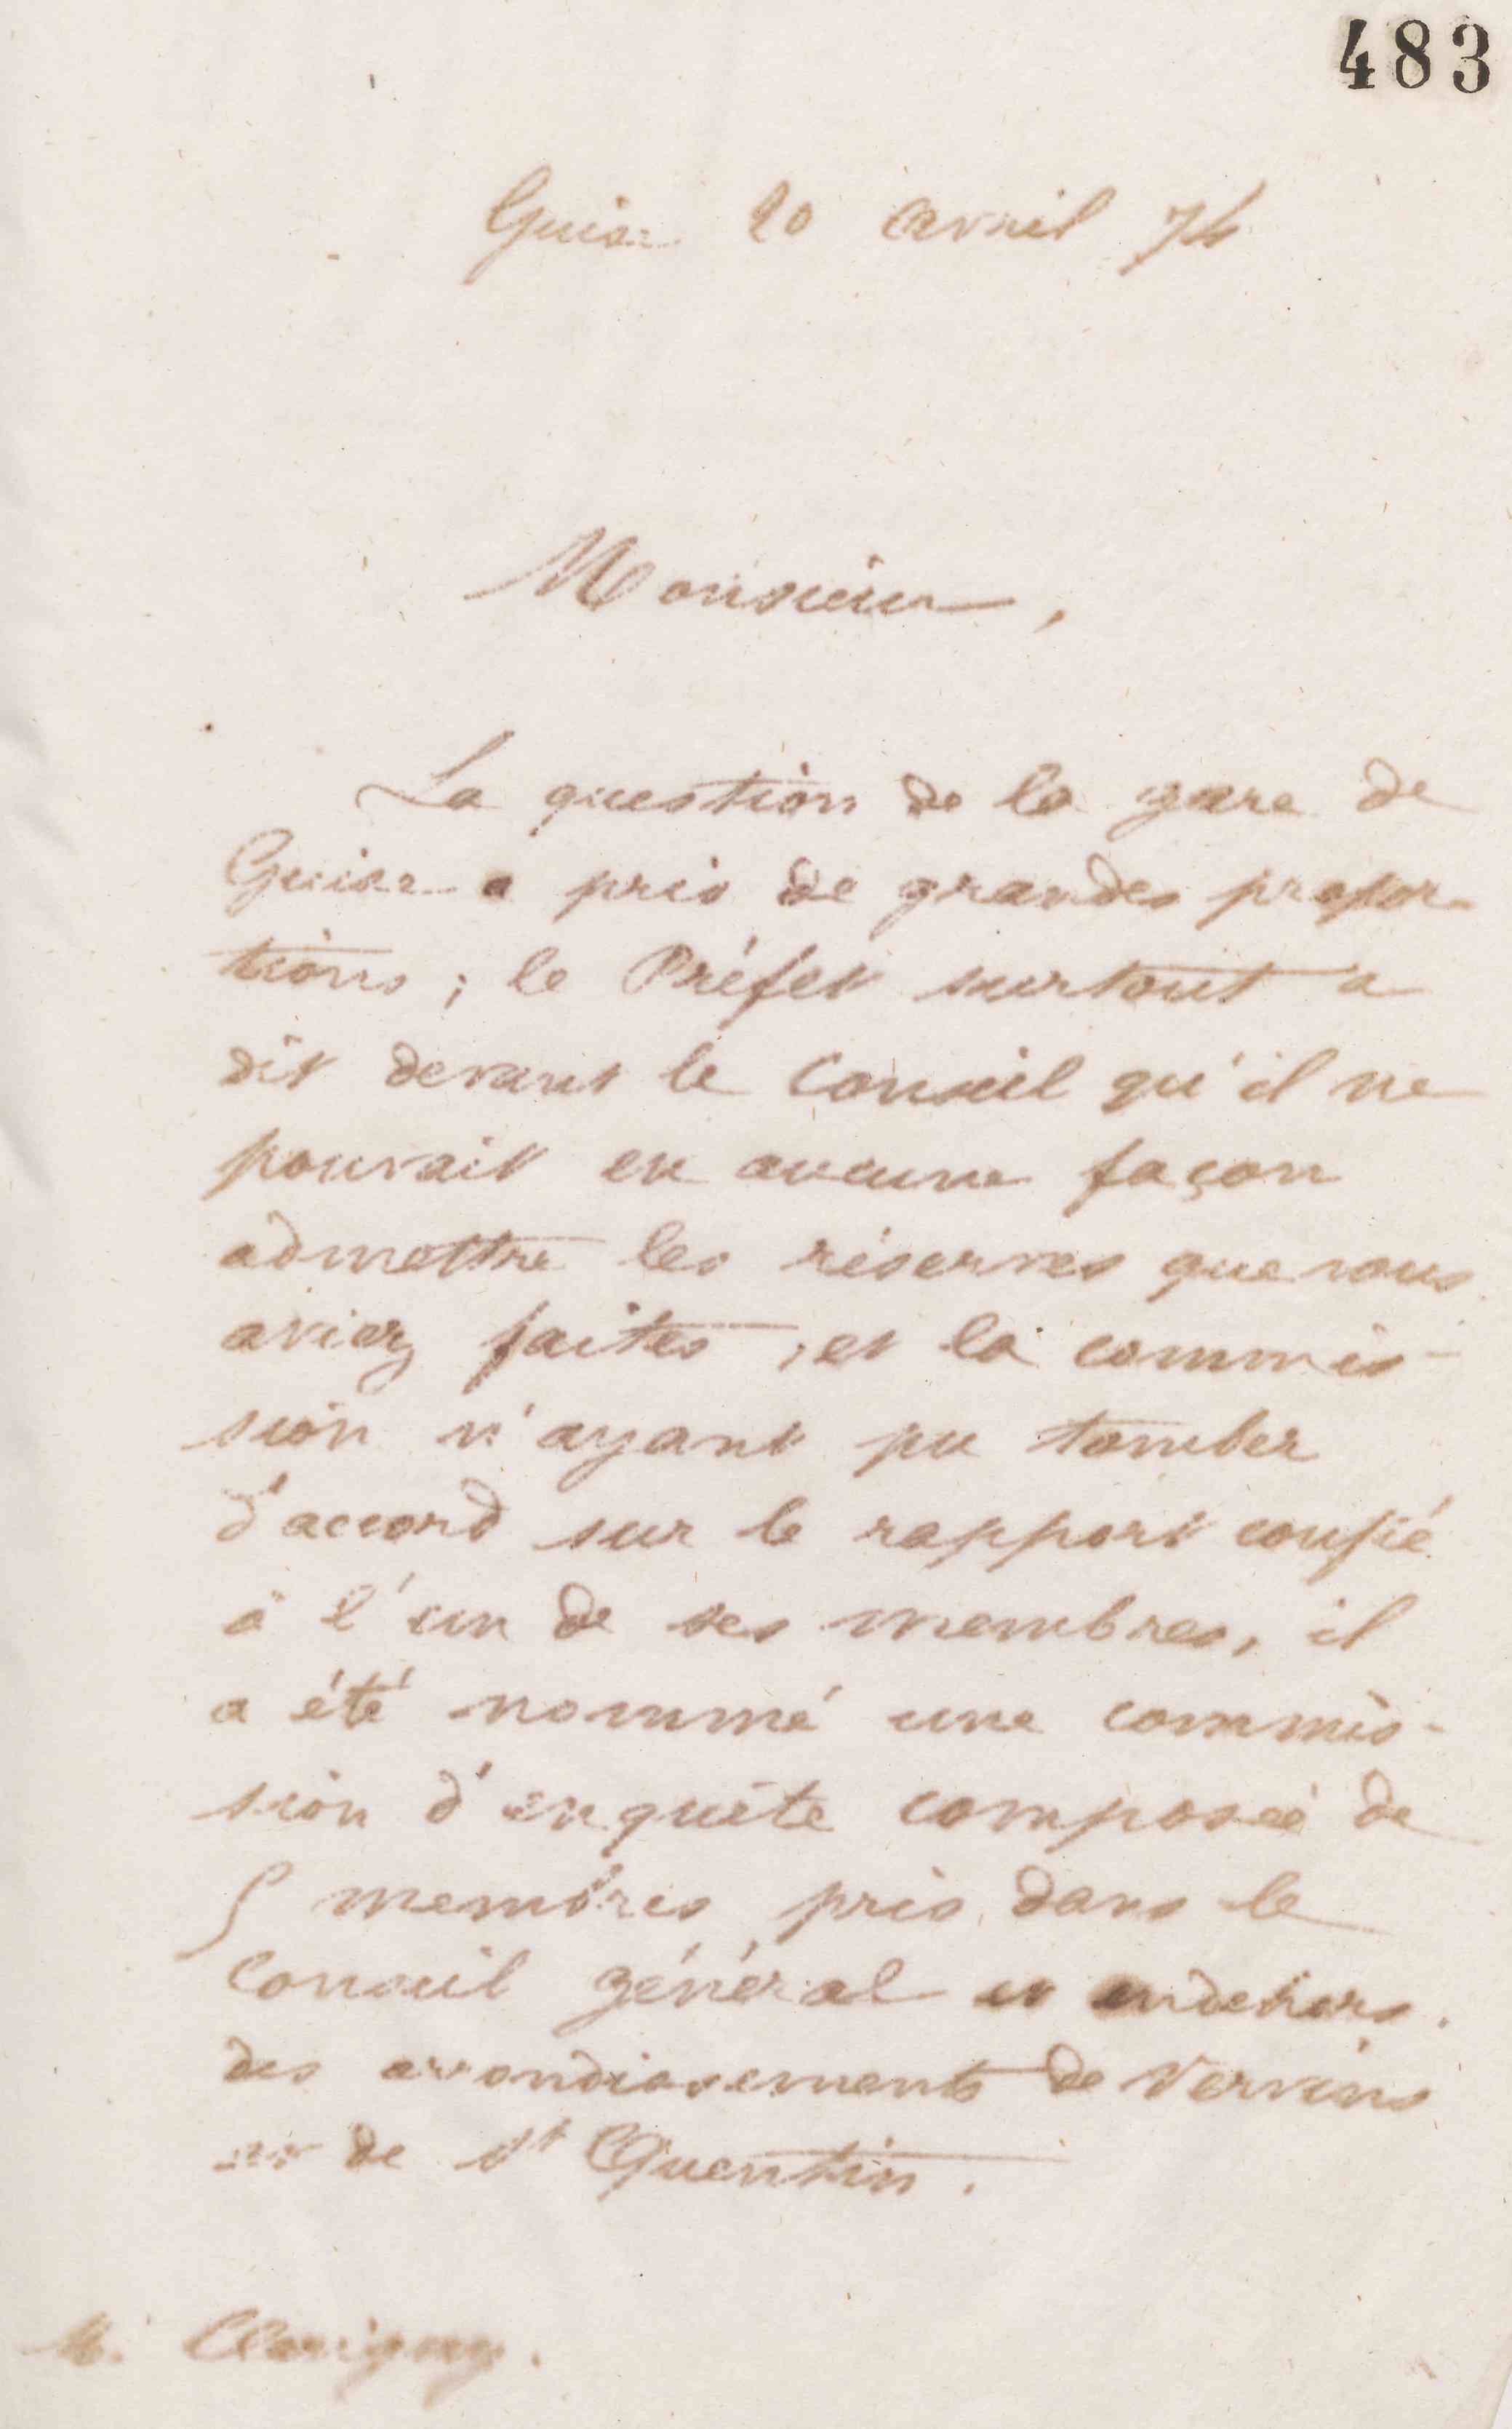 483
Guise 20 avril 74
Monsieur,
La question de la gare de
Guise a pris de grandes propor-
tions ; le Préfet surtout a
dit devant le Conseil qu'il ne
pouvait en aucune façon
admettre les réserves que vous
aviez faites, et la commis-
sion n'ayant pu tomber
d'accord sur le rapport confié
à l'un de ses membres, il
a été nommé une commis-
sion d'enquête composée de
5 membres pris dans le
Conseil général et endehors
des arrondissements de Vervins
et de St Quentin.
M.